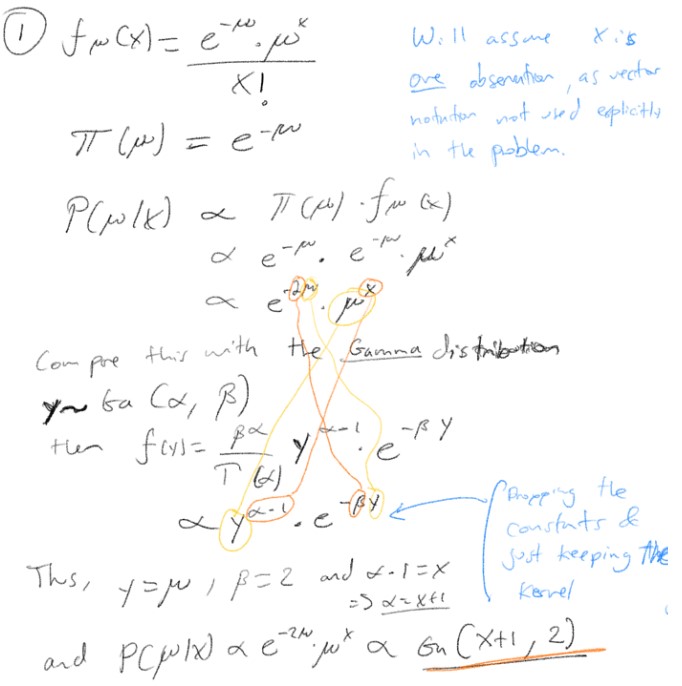 ① fμ(x) = e^-μ · μ^x / x!
Will assume x is
one observation, as vector
notation not used explicitly
in the problem.
π(μ) = e^-μ
P(μ|x) ∝ π(μ) · fμ(x)
∝ e^-μ · e^-μ · μ^x
∝ e^-2μ · μ^x
Compare this with the Gamma distribution
y ~ Ga(α, β)
then f(y) = β^α / Γ(α) y^α-1 · e^-βy
∝ y^α-1 · e^-βy
Dropping the
constants &
just keeping the
kernel
Thus, y = μ, β = 2 and α-1 = x
=> α = x+1
and P(μ|x) ∝ e^-2μ · μ^x ∝ Ga(x+1, 2)